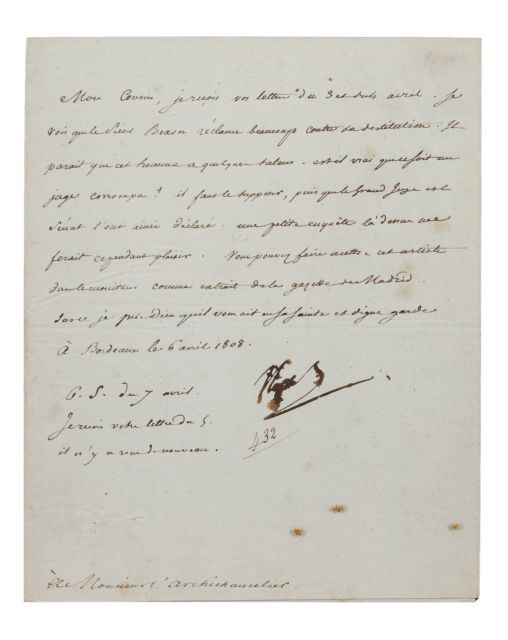 Mon Cousin, je reçois vos lettres du 3 et du 4 avril. Je
vois que le Sieur réclame beaucoup contre sa destitution. Il
parait que cet homme a quelque talens. est-il vrai que ce soit un
juge corrompu ? il faut le supposer, puisque le Grand Juge et le
Sénat l'ont ainsi déclaré. une petite enquête là dessus me
ferait cependant plaisir. Vous pouvez faire mettre cet article
dans le moniteur comme extrait de la gazette de Madrid.
Sur ce je prie Dieu qu'il vous ait en sa sainte et digne garde
À Bordeaux le 6 avril 1808.
P. S. du 7 avril.
Je reçois votre lettre du 5.
il n'y a rien de nouveau.
432
À Monsieur l'Archichancelier.